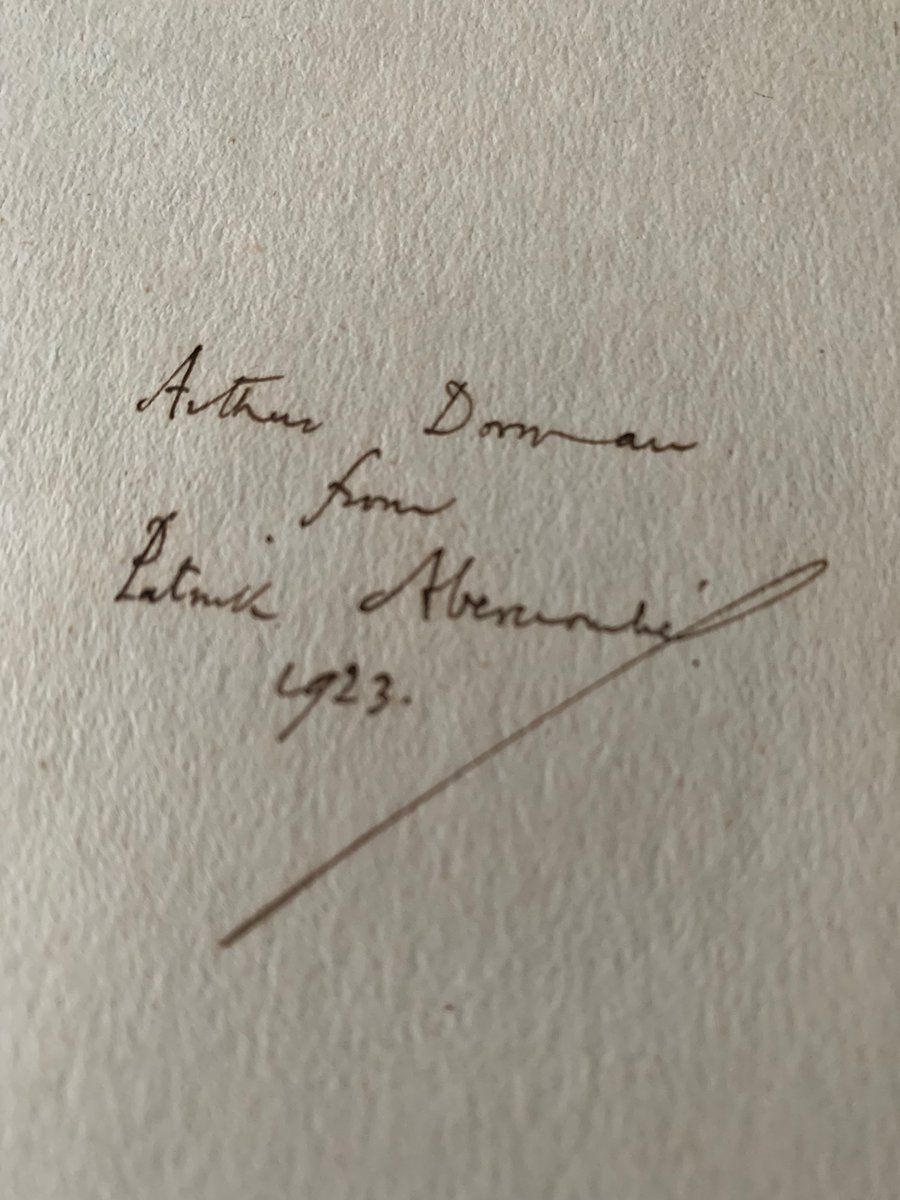 Arthur Dorman
from
Patrick Abercrombie
1923.